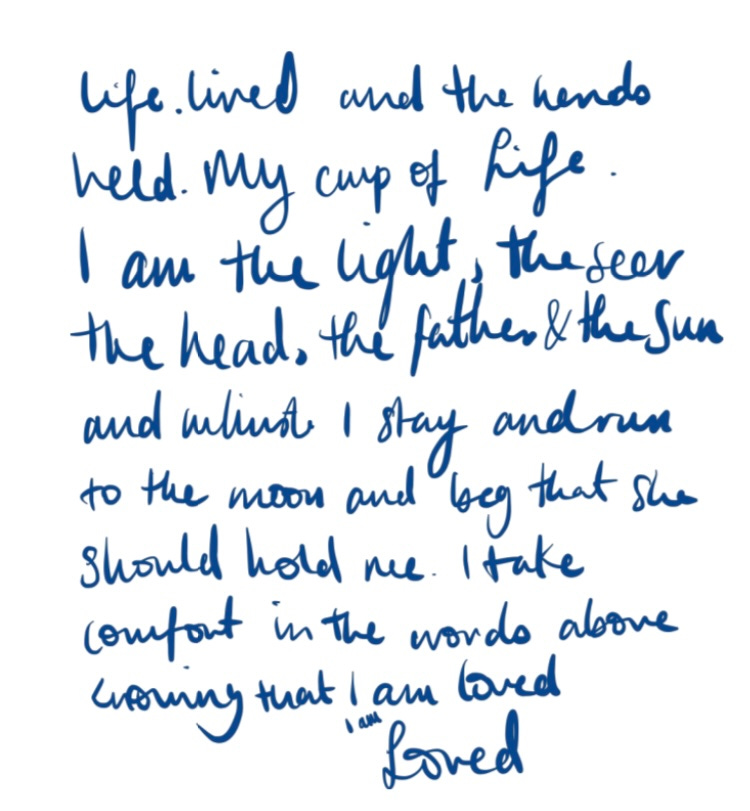 life. lived and the hands
held. My cup of Life.
I am the light, the seer
the head, the father & the Sun
and whilst I stay and run
to the moon and beg that she
should hold me. I take
comfort in the words above
knowing that I am loved
I am Loved